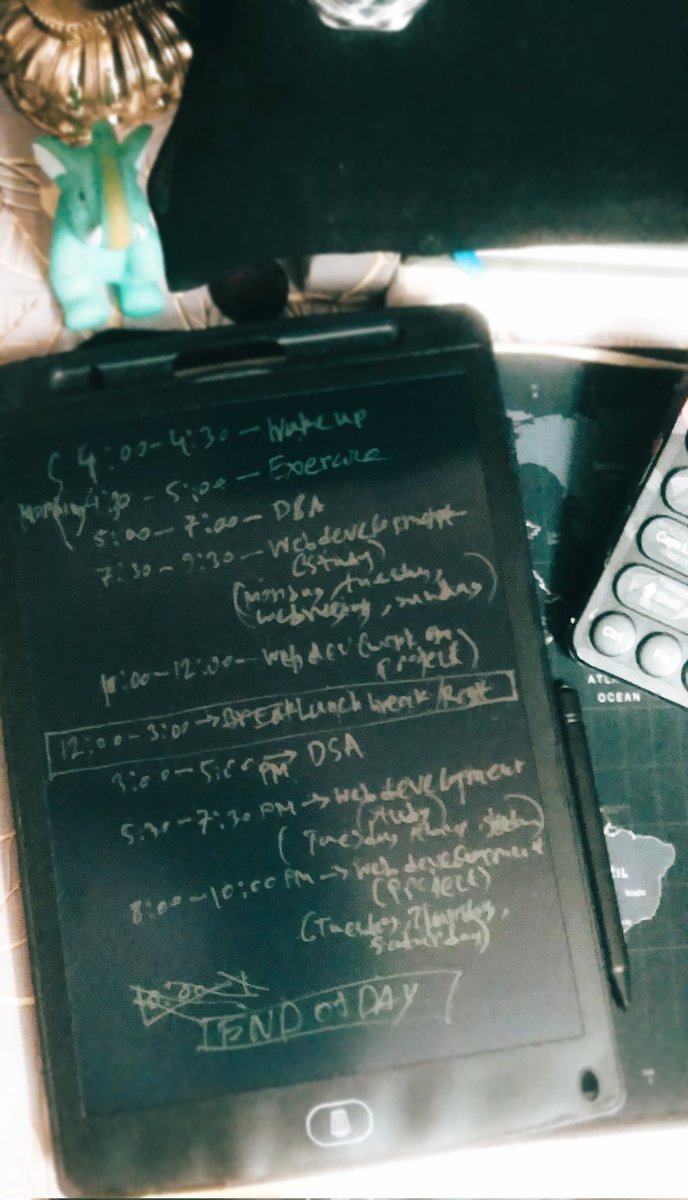 4:00-4:30 - Wake up
Morning 4:30 - 5:00 - Exercise
5:00 - 7:00 - DSA
7:30 - 9:30 - Web development
(Study)
(Monday, tuesday,
10:00-12:00 - Web dev (work on
project)
12:00-3:00 → BREAK Lunch break / Rest
3:00-5:00 PM → DSA
5:30-7:30 PM → Web development
(study)
(Tuesday,
8:00-10:00 PM → Web development
(Project)
(Tuesday, Thursday,
Saturday)
END of DAY
Ctrl
ATL
OCEAN
IL